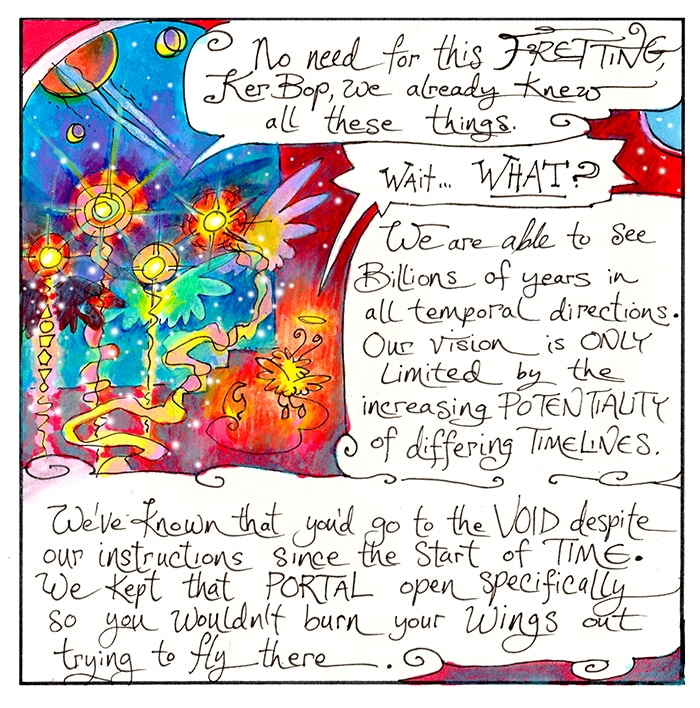 No need for this FRETTING,
KerBop, we already knew
all these things.
WAIT... WHAT?
We are able to see
Billions of years in
all temporal directions.
Our vision is ONLY
Limited by the
increasing POTENTIALITY
of differing TIMELINES.
We've known that you'd go to the VOID despite
our instructions since the Start of TIME.
We kept that PORTAL open specifically
so you wouldn't burn your Wings out
trying to fly there.